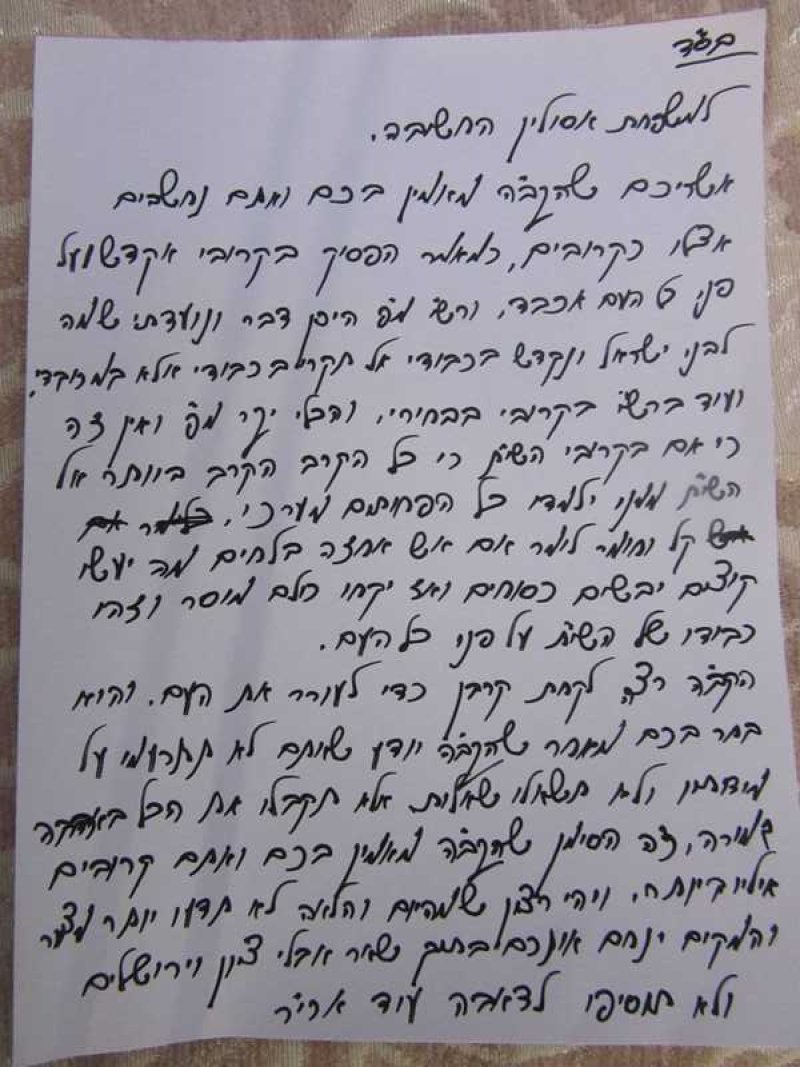 בס״ד
למשפחת אסולין החשובה.
אשריכם שהקב״ה מאמין בכם ואתם נחשבים
אצלו כקרובים, כמאמר הפסוק בקרובי אקדש ועל
פני כל העם אכבד, ורש״י מפ׳ היכן דבר ונועדתי שמה
לבני ישראל ונקדש בכבודי אל תקרי בכבודי אלא במכובדי.
ועוד ברש״י בקרובי בבחירי, והכלי יקר מפ׳ ואין זה
כי אם בקרובי השי״ת כי כל הקרב הקרב ביותר אל
השי״ת ממני ילמדו כל הפחותים מערכי,
קל וחומר לומר אם אש אחזה בלחים מה יעשו
קוצים יבשים כסוחים ואז יקחו כולם מוסר וזהו
כבודו של השי״ת על פני כל העם.
הקב״ה רצה לקחת קרבן כדי לעורר את העם. והוא
בחר בכם מאחר שהקב״ה יודע שאתם לא תתרעמו על
מידותיו ולא תשאלו שאלות אלא תקבלו את הכל באהבה
גמורה, זה הסימן שהקב״ה מאמין בכם ואתם קרובים
אליו ויהי רצון שמהיום והלאה לא תדעו יותר מצער
והמקום ינחם אותכם בתוך שאר אבלי ציון וירושלים
ולא תוסיפו לדאבה עוד אכי״ר